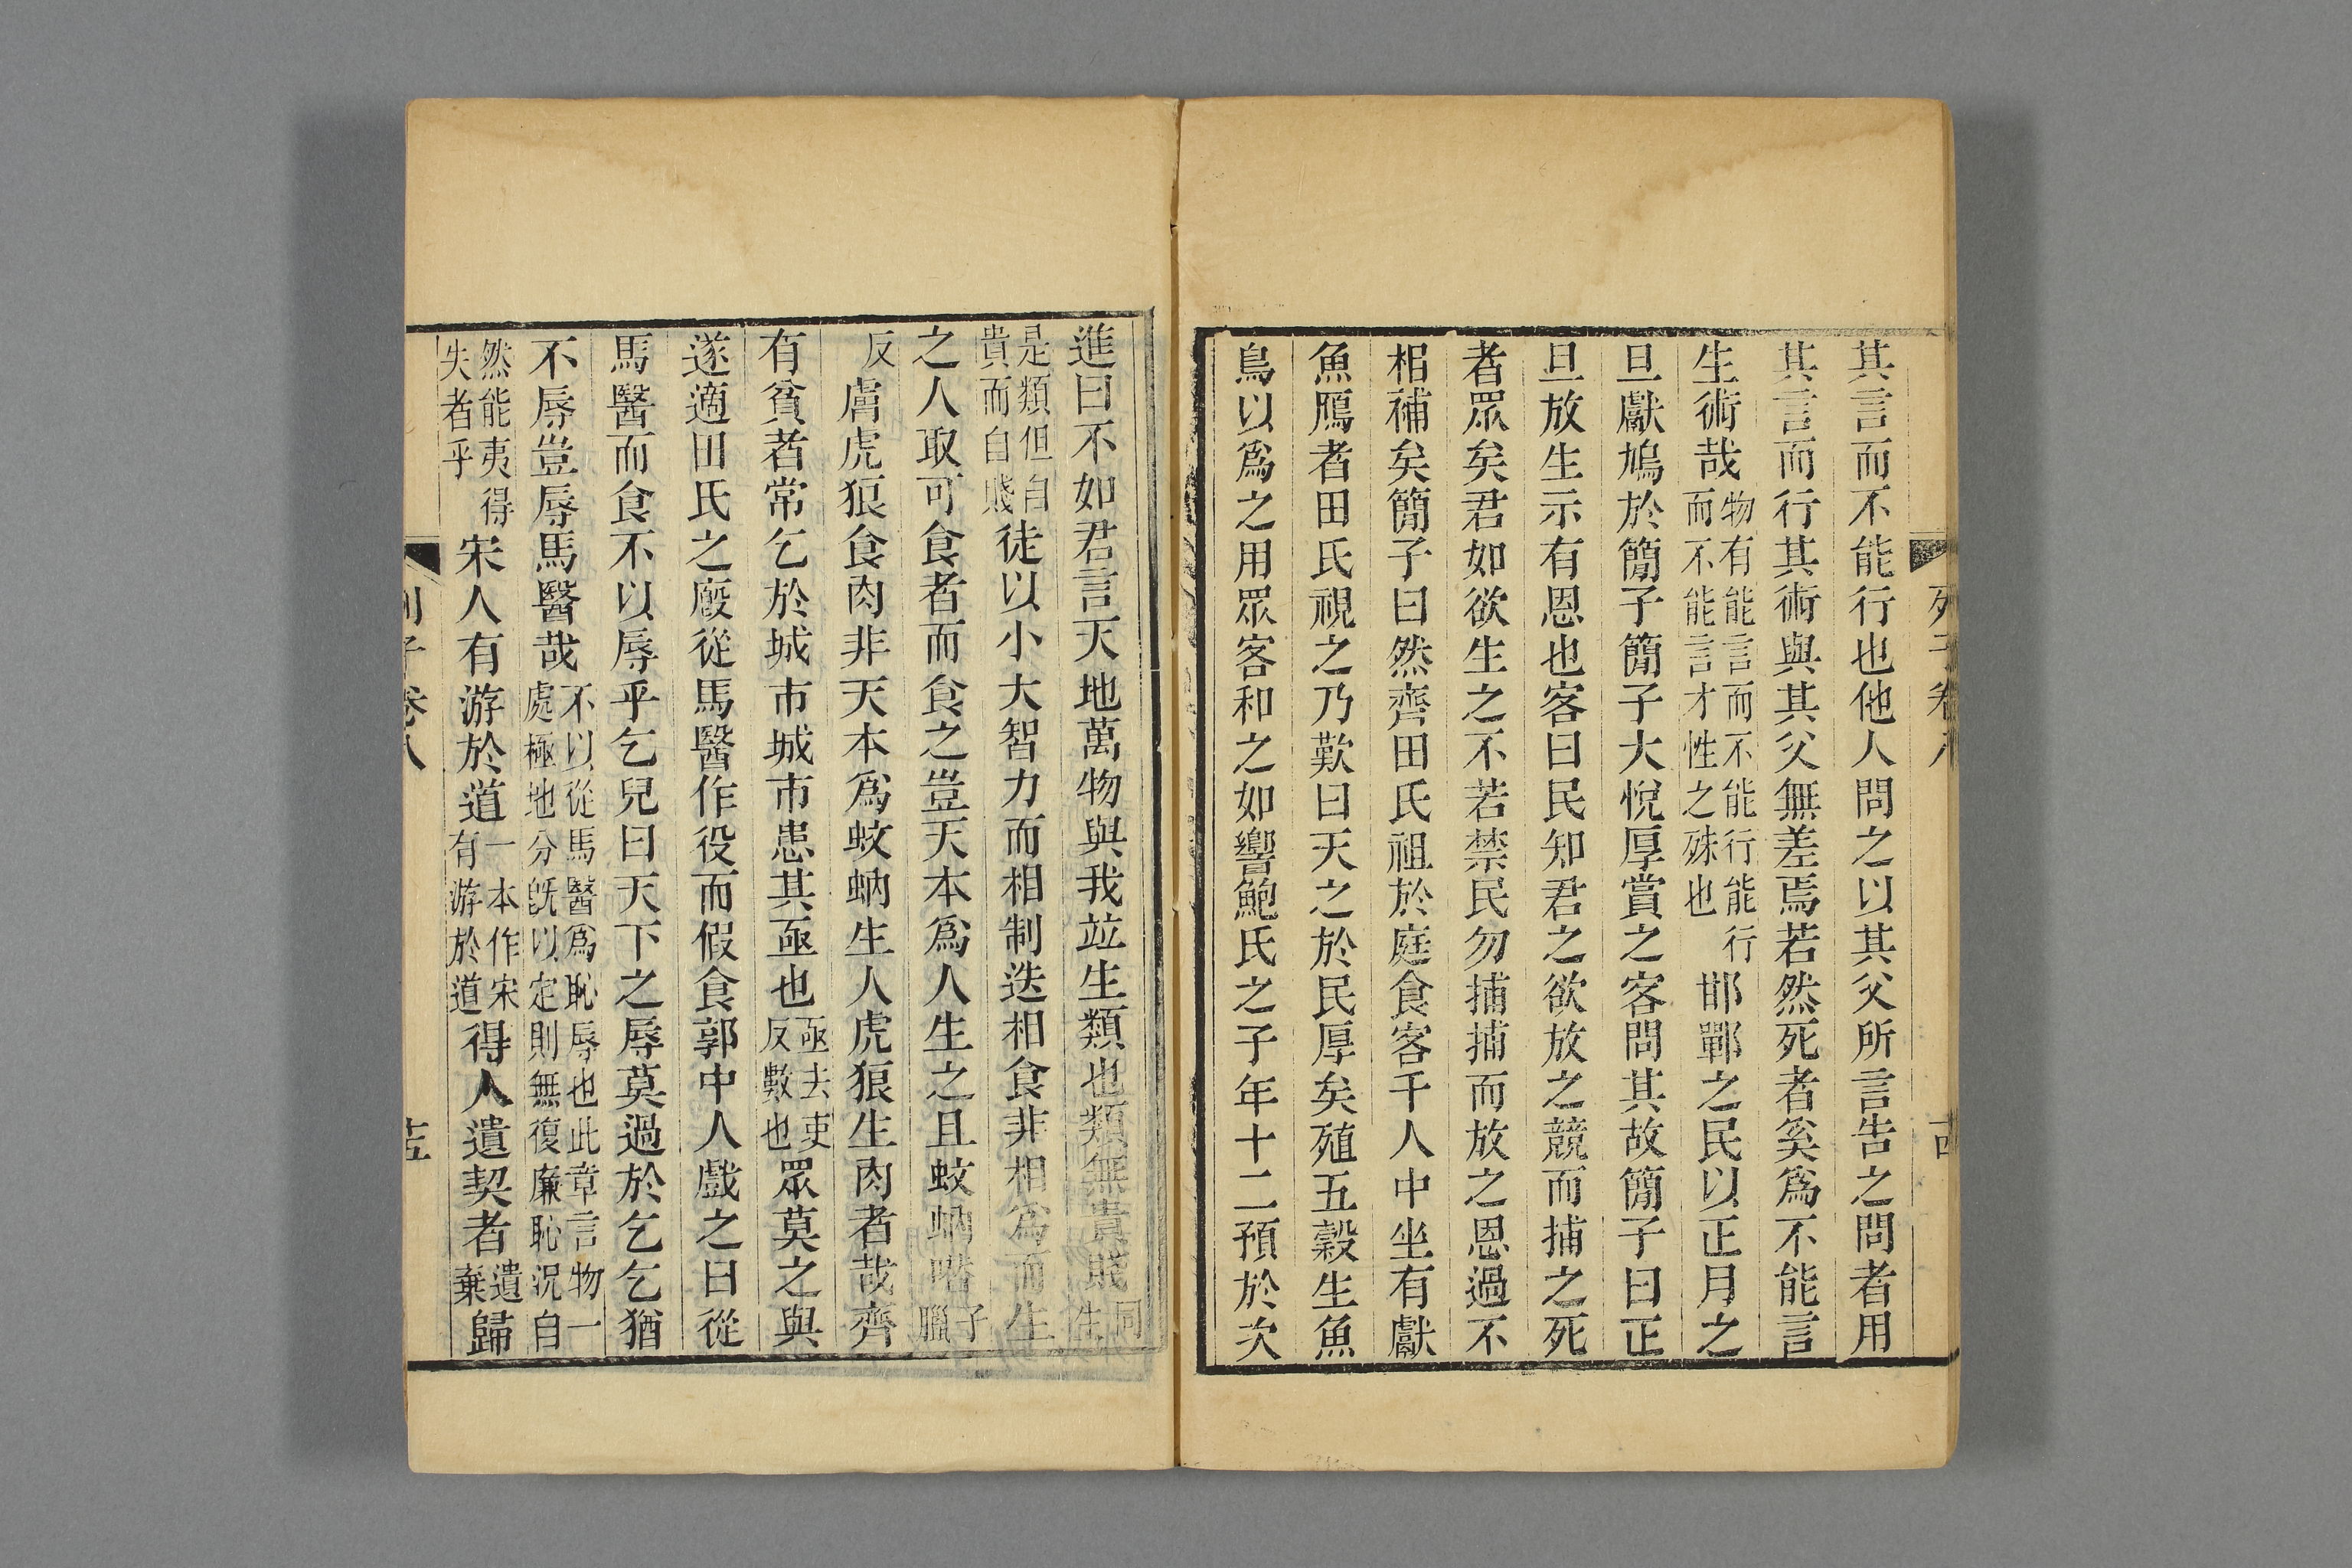 其言而不能行也他人問之以其父所言告之問者用
其言而行其術與其父無差焉若然死者奚爲不能言
生術哉物有能言而不能行能行而不能言才性之殊也邯鄲之民以正月之
旦獻鳩於簡子簡子大悅厚賞之客問其故簡子曰正
旦放生示有恩也客曰民知君之欲放之競而捕之死
者眾矣君如欲生之不若禁民勿捕捕而放之恩過不
相補矣簡子曰然齊田氏祖於庭食客千人中坐有獻
魚鴈者田氏視之乃歎曰天之於民厚矣殖五穀生魚
鳥以爲之用眾客和之如響鮑氏之子年十二預於次
進曰不如君言天地萬物與我竝生類也類無貴賤同生
是類但自貴而自賤徒以小大智力而相制迭相食非相爲而生
之人取可食者而食之豈天本爲人生之且蚊蚋噆子臘
反膚虎狼食肉非天本爲蚊蚋生人虎狼生肉者哉齊
有貧者常乞於城市城市患其亟也亟去吏反數也眾莫之與
遂適田氏之廄從馬醫作役而假食郭中人戲之曰從
馬醫而食不以辱乎乞兒曰天下之辱莫過於乞乞猶
不辱豈辱馬醫哉不以從馬醫爲恥辱也此章言物一處極地分旣以定則無復廉恥況自
然能夷得失者乎宋人有游於道一本作宋有游於道得人遺契者遺棄歸
列子卷八